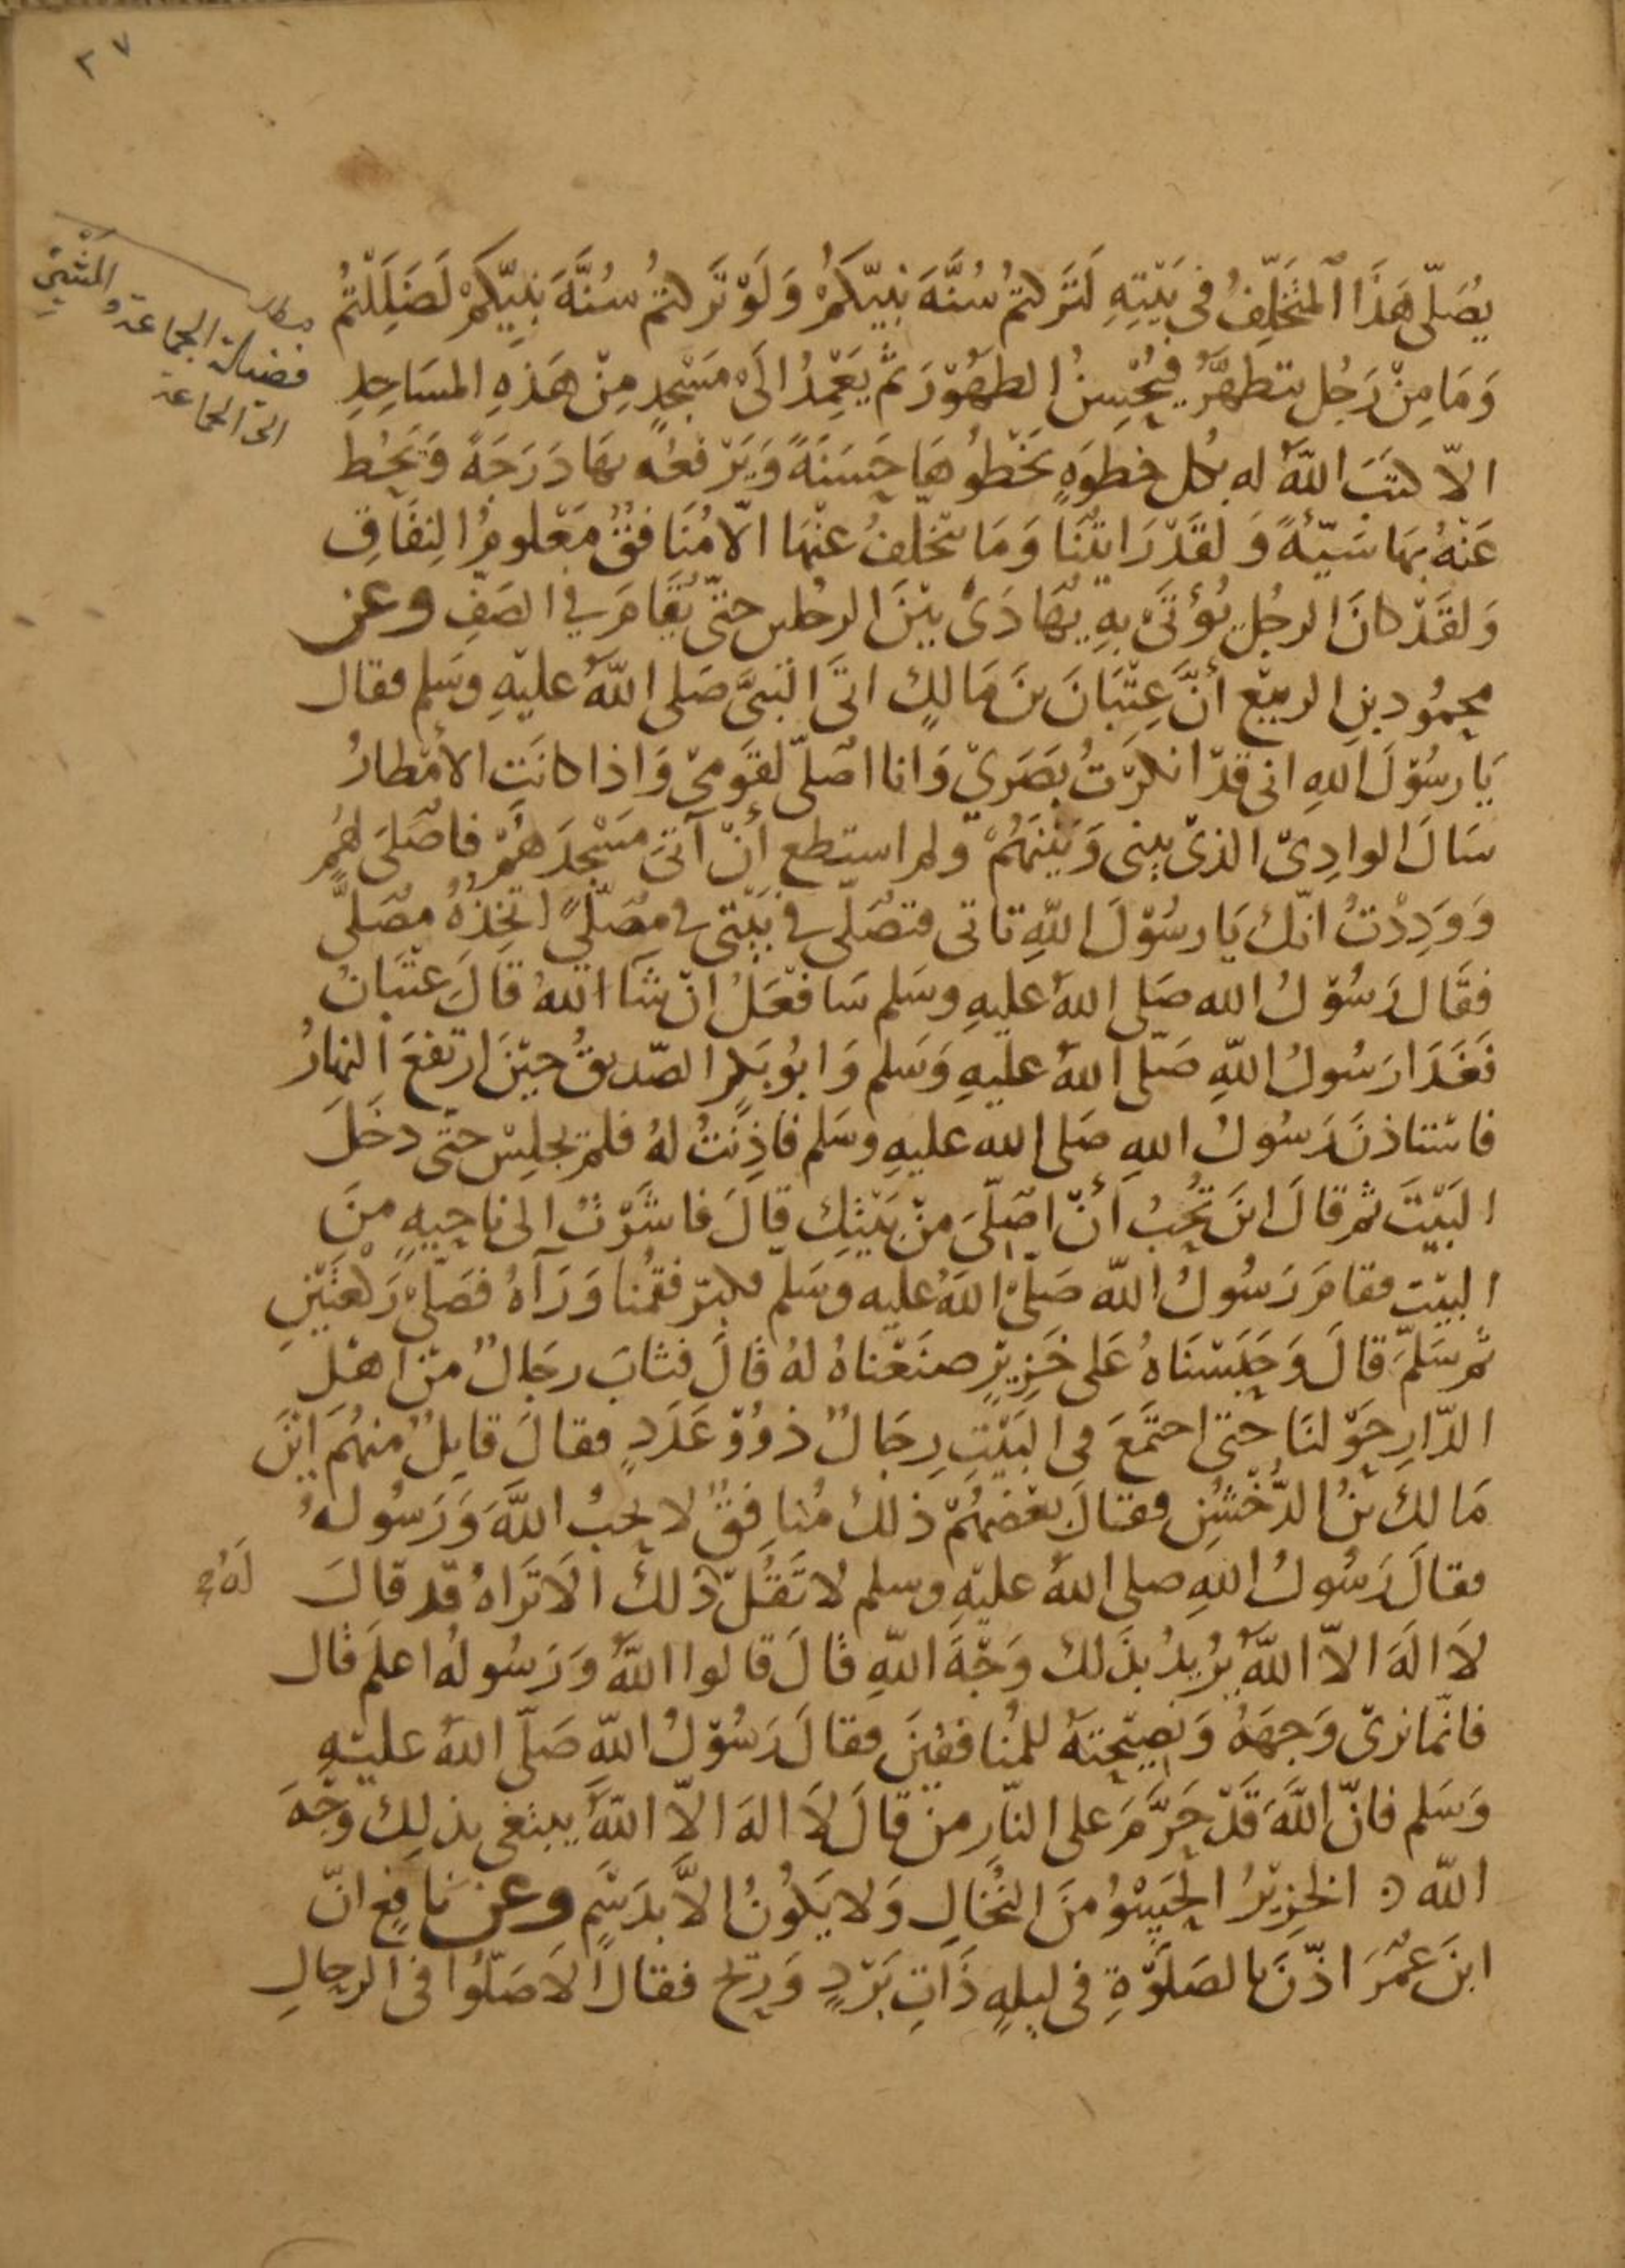 ٢٧
مطلب
فضيلة الجماعة والمشي
الى الجماعة
يُصَلّى هَذَا المُتَخَلِّفُ فى بَيْتِهِ لَتَرَكتمُ سُنَّةَ نَبِيّكُمْ وَلَوْ تَرَكتمُ سُنَّةَ نَبِيّكُمْ لَضَلَلْتُمُ
وَمَا مِنْ رَجُل يتطَهَّرُ فيُحْسِنُ الطهُوْرَ ثمّ يَعْمِدُ الَىْ مَسْجِدٍ مِنْ هَذِهِ المسَاجِدِ
الاّ كتبَ اللّهُ له بكل خطوَةٍ يَخْطُوهَا حَسَنَةً وَيَرْفعُه بهَا دَرَجَةً وَيَحُط
عَنْهُ بهَا سَيّئةً وَلقَدْ رَايتُنَا وَمَا يتخلفُ عنْهَا الاّ مُنَافقٌ مَعْلومُ النِفَاقِ
وَلقَدْ كانَ الرجُل يُؤْتَىْ بِهِ يُهَادَىْ بيْنَ الرجُلين حتىّ يُقَامَ في الصَفِ وعن
محمُود بنِ الربيْع أنَّ عِتْبَانَ بنَ مَالكٍ اتَى النَبىَّ صَلى اللّهُ عليْهِ وسَلم فقال
يَا رسُوْلَ اللهِ انى قدْ انكرْتُ بصَرَيْ وَانا اصَلىّ لقوَمىْ وَاذا كانَت الأمْطارُ
سَالَ الوادِىْ الذىْ بينى وَبَيْنَهُمْ ولم استطع أنْ آتىَ مَسْجِدَهُمْ فاصَلىَ لهُم
وَوَدِدْتُ انّك يَا رسُوْلَ اللّهِ تاتى فتصَلّى في بَيْتى في مصَلىً اتخِذهُ مصَلىً
فقَال رَسُوْلُ الله صَلى اللهُ عليهِ وسَلم سَافعَلُ انْ شآ اللهُ قاَلَ عتْبَانُ
فَغَدَا رَسُولُ اللّهِ صَلّى اللهُ عليهِ وَسَلم وَابُوْبَكرٍ الصّديقُ حيْنَ ارْتفعَ النهارُ
فاستاذنَ رَسُولُ اللهِ صَلى الله عليهِ وسَلم فاذِنتُ لهُ فلمْ يجلِسْ حتى دخَلَ
البَيْتَ ثم قالَ ايْنَ تحُبُ أنْ اصَلّىَ منْ بَيْتكِ قالَ فاشَرْتُ الى ناحيهٍ منَ
البيْت فقامَ رَسُولُ اللّه صَلّىْ اللّهُ عليه وسَلم فكبرّ فقمْنا وَرَآهُ فصَلىّ رَكعَتَيْنِ
ثم سَلمّ قالَ وَحَبَسْنَاهُ عَلى خَزِيْرٍ صنَعْناهُ لهُ قالَ فثابَ رجَالٌ منْ اهْلِ
الدّارِ حَوْلنَا حتى اجتمَعَ فى البَيْتِ رِجَالٌ ذوُوْ عَدَدٍ فقالَ قايلٌ منهُمَ ايْنَ
مَالكُ بْنُ الدّخْشُنِ فقالَ بعْضهُمْ ذلكُ مُنافِقٌ لا يحُبُ اللّهَ وَرَسُولهُ
فقالَ رَسُولُ اللهِ صلى اللهُ عليْهِ وسلم لا تَقُلْ ذلكَ الاَ تَرَاهُ قد قالَ
لَهُ
لاَ الَهَ الاّ اللّهُ يُريدُ بذَلك وَجْهَ اللّهِ قالَ قالوا اللّهُ وَرَسُولهُ اعلَم قال
فانّما نرىْ وَجهَهُ وَنصِيْحتَهُ للمُنافقينَ فقالَ رَسُوْلُ اللّهِ صَلّى اللهُ عليْهِ
وَسَلم فانّ اللّهَ قَدْ حَرَّمَ على النّارِ منْ قالَ لاَ الهَ الاّ اللّهُ يبتغى بذلِكَ وَجْهَ
اللّه الخِزيْرُ الحَيْسُو منَ النُخالِ وَلا يَكُونُ الاَّ بدَسْمٍ وعن نافعٍ انّ
ابنَ عُمَرَ اذّنَ بالصَلَوْةِ فى ليلهٍ ذَاتِ بَرْدٍ وَريْح فقالَ الاَ صَلوُّا فى الرحالِ